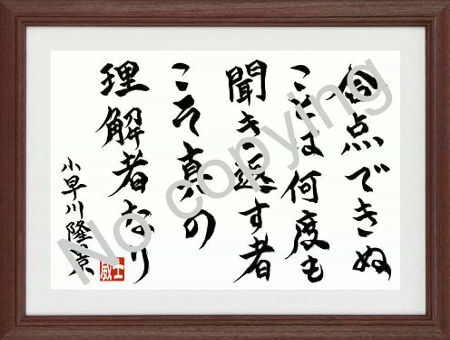 合点できぬ
ことは何度も
聞き返す者
こそ真の
理解者なり
小早川隆景
No copying